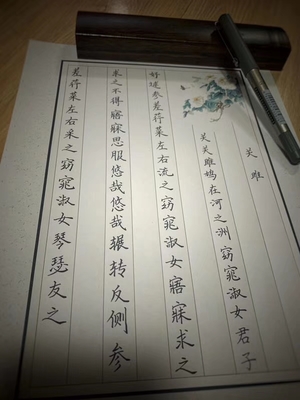 关雎
关关雎鸠在河之洲窈窕淑女君子
好逑参差荇菜左右流之窈窕淑女寤寐求之
求之不得寤寐思服悠哉悠哉辗转反侧参
差荇菜左右采之窈窕淑女琴瑟友之